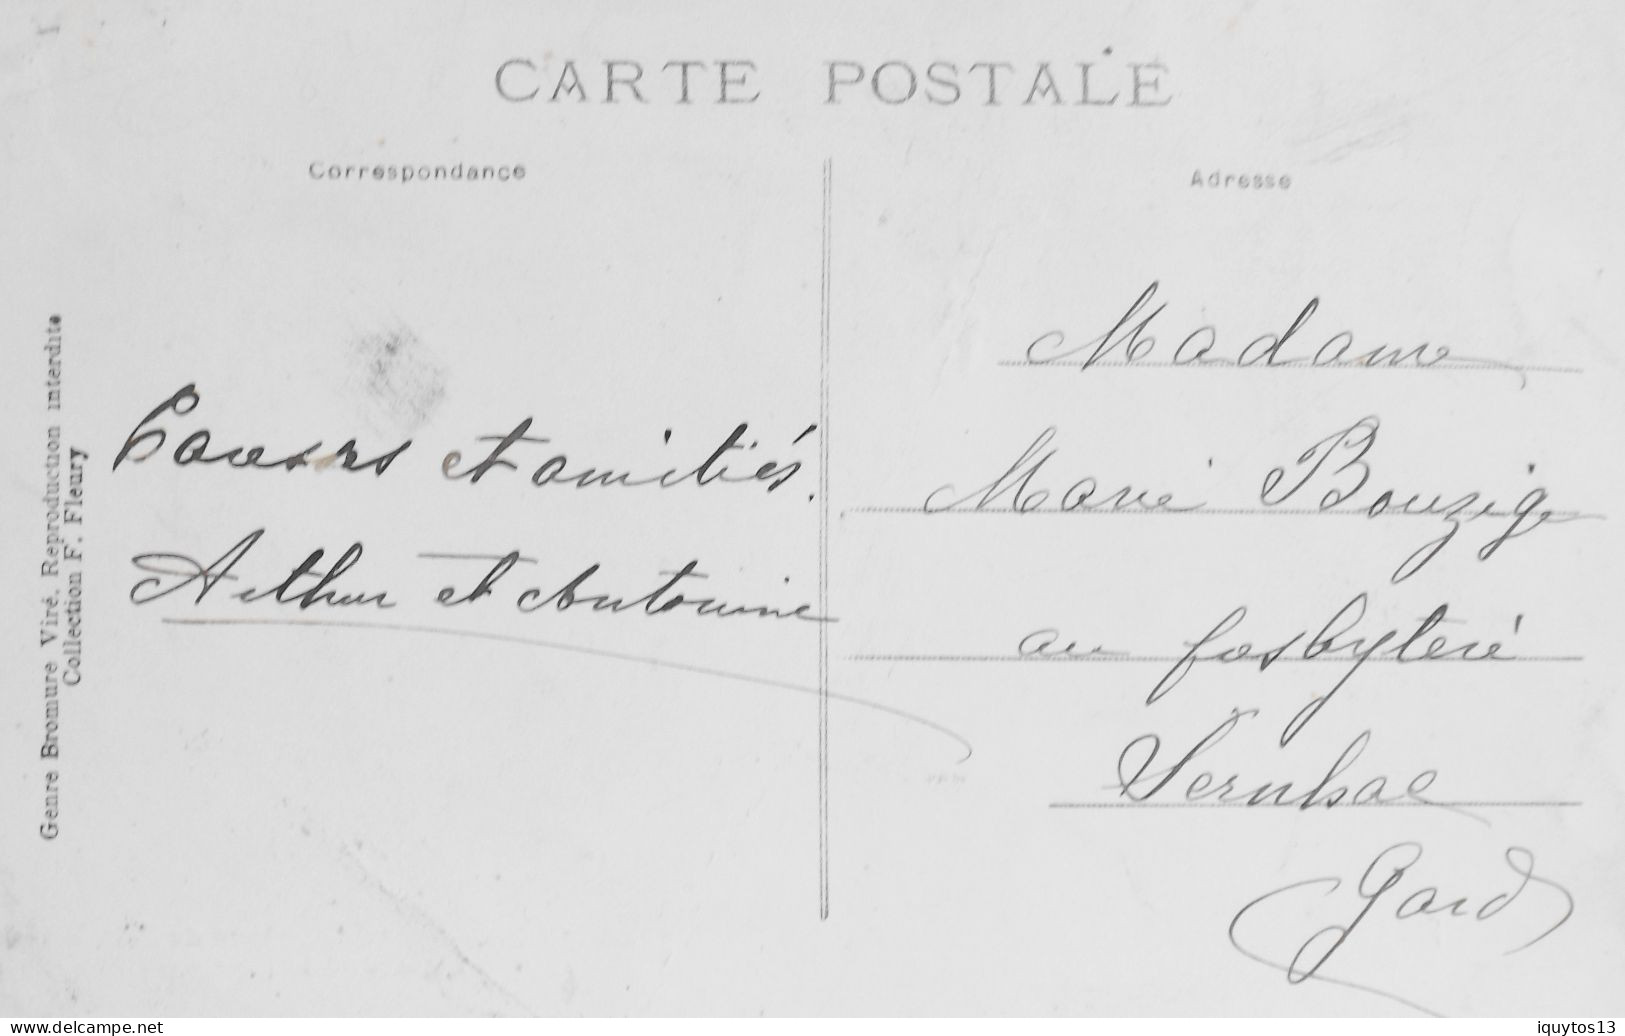 CARTE POSTALE
Correspondance
Adresse
Genre Bromure Viré. Reproduction interdite
Collection F. Fleury
et amitiés.
Arthur et Antonine
Madame
Marie Bouzige
au presbyteré
Sernhac
Gard
www.delcampe.net
iquytos13